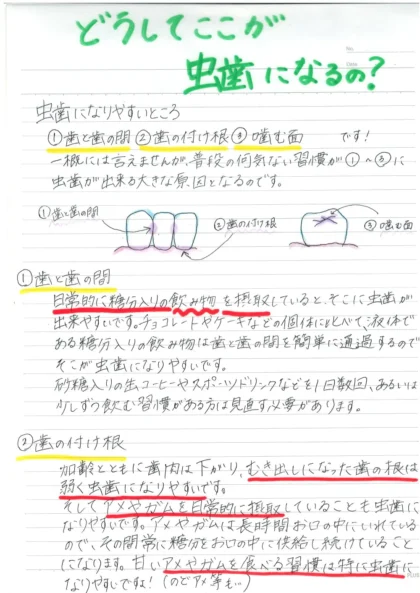 どうしてここが
虫歯になるの?
虫歯になりやすいところ
①歯と歯の間 ②歯の付け根 ③噛む面 です!
一概には言えませんが、普段の何気ない習慣が①~③に
虫歯が出来る大きな原因となるのです。
①歯と歯の間
②歯の付け根
③噛む面
①歯と歯の間
日常的に糖分入りの飲み物を摂取していると、そこに虫歯が
出来やすいです。チョコレートやケーキなどの個体にくらべて、液体で
ある糖分入りの飲み物は歯と歯の間を簡単に通過するので
そこが虫歯になりやすいです。
砂糖入りの缶コーヒーやスポーツドリンクなどを1日数回、あるいは
少しずつ飲む習慣がある方は見直す必要があります。
②歯の付け根
加齢とともに歯肉は下がり、むき出しになった歯の根は
弱く虫歯になりやすいです。
そしてアメやガムを日常的に摂取していることも虫歯に
なりやすいです。アメやガムは長時間お口の中にいれている
ので、その間常に糖分をお口の中に供給し続けていること
になります。甘いアメやガムを食べる習慣は特に虫歯に
なりやすいですね!(のどアメ等も…)